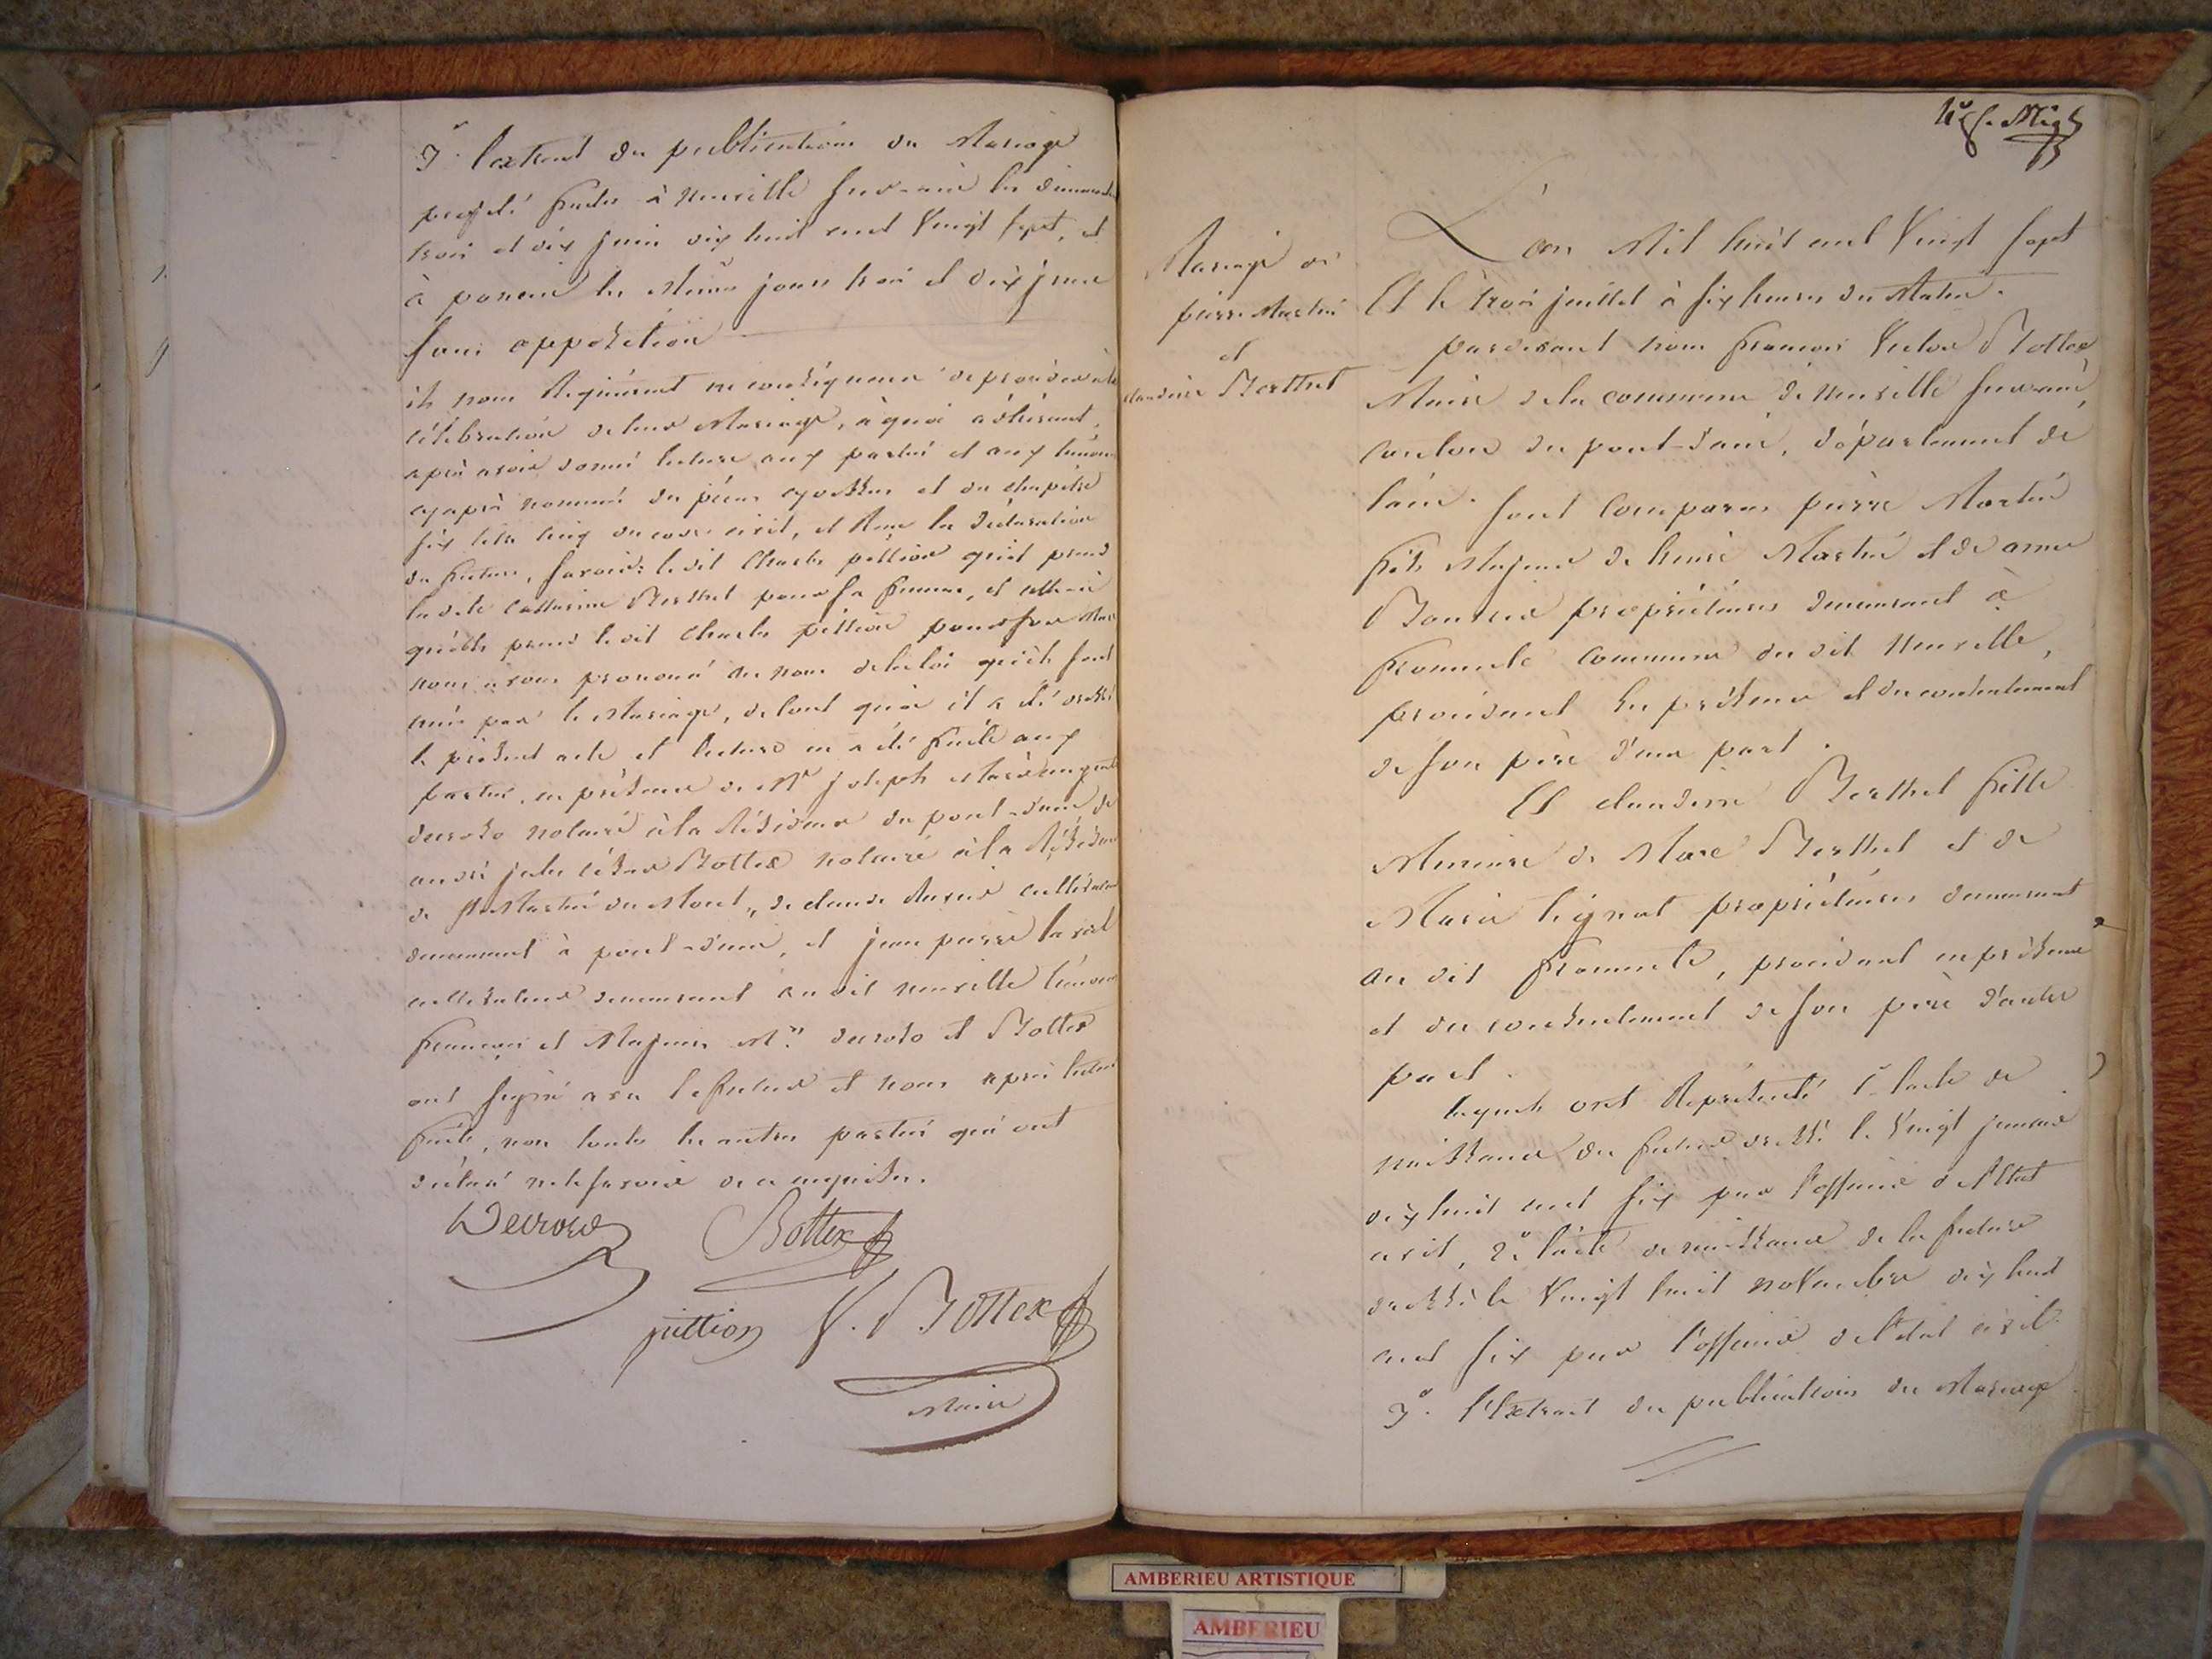 3° l'extrait des publications de Mariage
projeté faites à neuville sur-ain les dimanches
trois et dix juin dix huit cent Vingt sept, et
à poncin les Mêmes jours trois et dix juin
sans opposition
ils nous Requierent en conséquence de procéder à la
célébration de leur Mariage, à quoi adhérant,
après avoir donné lecture aux parties et aux témoins
cy après nommés des pièces cy dessus et du chapitre
six titre cinq du code civil, et Reçu la déclaration
du futur, savoir: le dit Charles pittion qu'il prend
la dite Catherine Berthet pour sa femme, et celle-ci
qu'elle prend le dit Charles pittion pour son Mari
nous avons prononcé au nom de la loi qu'ils sont
unis par le Mariage, de tout quoi il a été dressé
le présent acte et lecture en a été faite aux
parties, en présence de Mr joseph
notaire à la Résidence du pont-d'ain, de
aussi jules César Bottex notaire à la Résidence
de St Martin du Mont, de claude cultivateur
demeurant à pont-d'ain, et jean pierre
cultivateur demeurant au dit neuville témoins
français et Majeurs Mrs et Bottex
ont signé avec le futur et nous après lecture
faite, non toutes les autres parties qui ont
déclaré ne le savoir de ce enquises.
Bottex
pittion V. Bottex
Maire
Mariage de
pierre Martin
et
claudine Berthet
L'an Mil huit cent Vingt sept
Et le trois juillet à six heures du Matin.
pardevant nous francois Victor Bottex
Maire de la commune de neuville sur-ain,
canton du pont-d'ain, département de
l'ain. sont comparus pierre Martin
fils Majeur de Martin et de anne
propriétaires demeurant à
fromente commune du dit neuville,
procédant en présence et du consentement
de son père d'une part.
Et claudine Berthet fille
Mineure de Marc Berthet et de
Marie propriétaires demeurant
au dit fromente, procédant en présence
et du consentement de son père d'autre
part.
lesquels ont Représenté 1° l'acte de
naissance du futur dressé le Vingt janvier
dix huit cent six par l'officier de l'Etat
civil, 2° l'acte de naissance de la future
dressé le Vingt huit novembre dix huit
cent six par l'officier de l'état civil
3° l'Extrait des publications de Mariage
AMBERIEU ARTISTIQUE
AMBERIEU